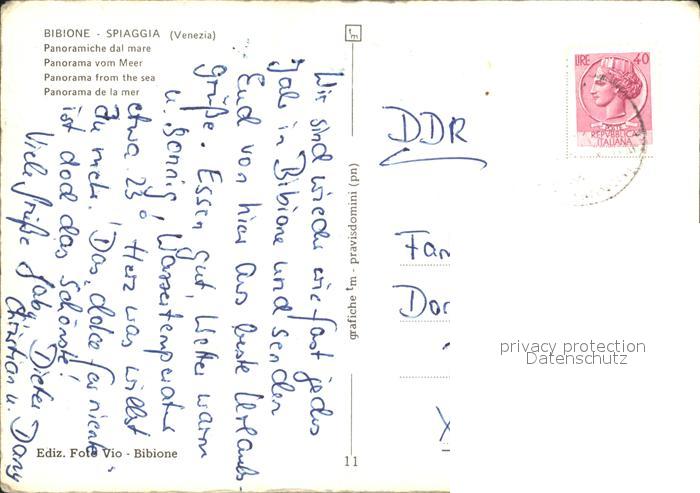 BIBIONE - SPIAGGIA (Venezia)
Panoramiche dal mare
Panorama vom Meer
Panorama from the sea
Panorama de la mer
Wir sind wieder wie fast jedes
Jahr in Bibione und senden
Euch von hier aus beste Urlaubs-
grüße. Essen gut, Wetter warm
u. sonnig, Wassertemperatur
etwa 23° Herz was willst
du mehr. Das "dolce far niente"
ist doch das schönste!
Viele Grüße Gaby, Dieter
Christian u. Dany
Ediz. Foto Vio - Bibione
grafiche tm - pravisdomini (pn)
11
tm
LIRE 40
POSTE
REPVBBLICA
ITALIANA
DDR
Fam
Dor
privacy protection
Datenschutz